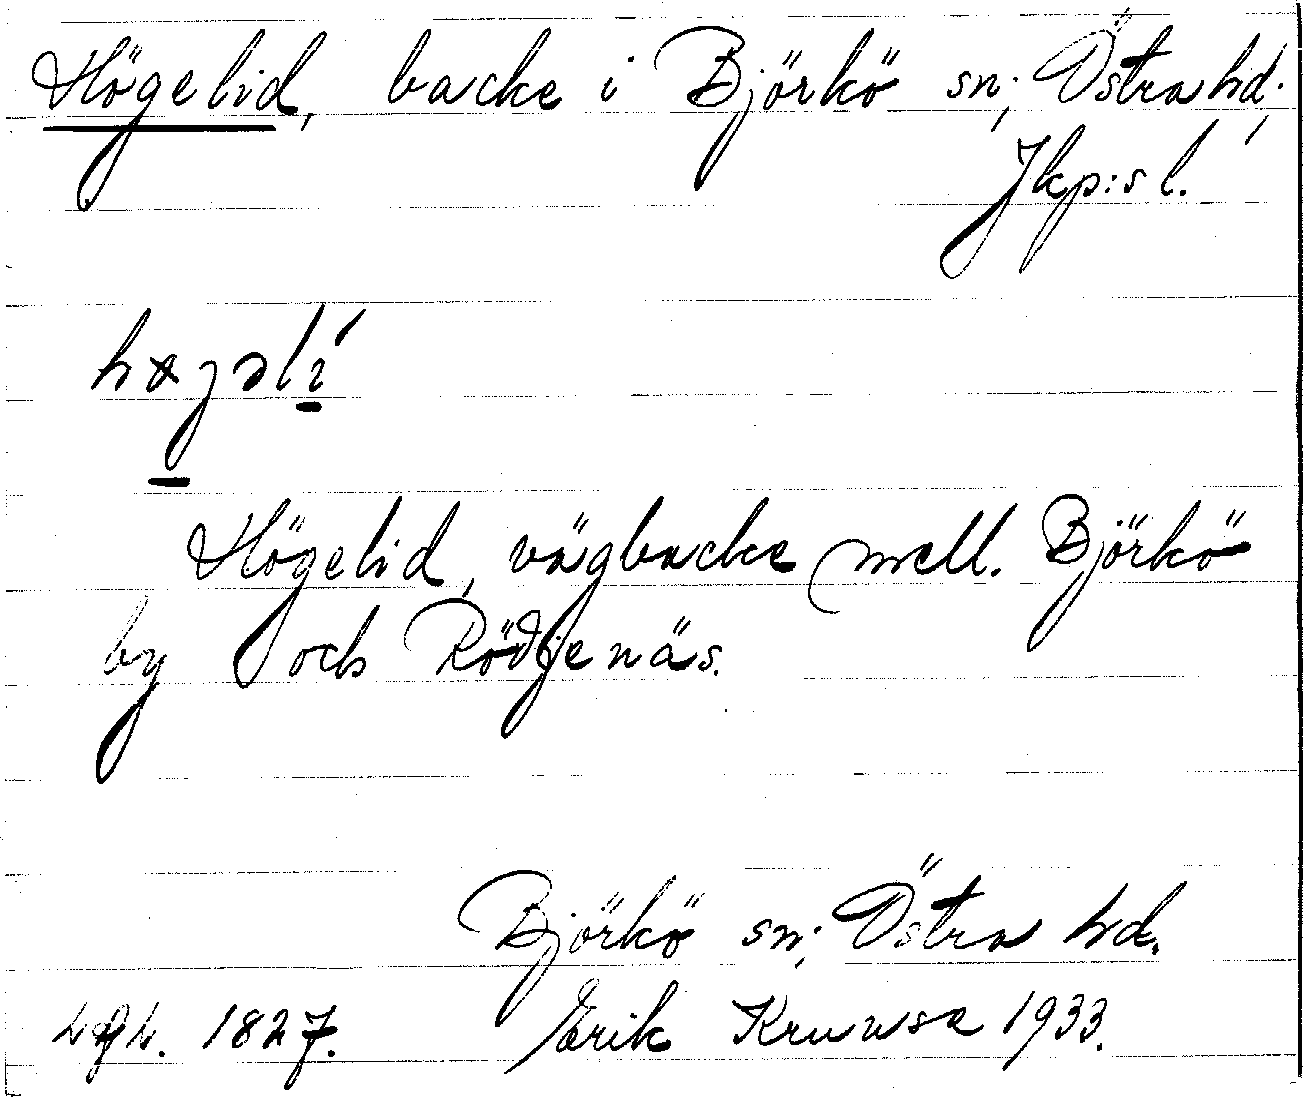 Högelid, backe i Björkö sn; Östra hd.,
Jkp:s l.
Högelid, vägbacke mell. Björkö
by och Rödjenäs.
Björkö sn; Östra hd.
1827. Erik Kruuse 1933.